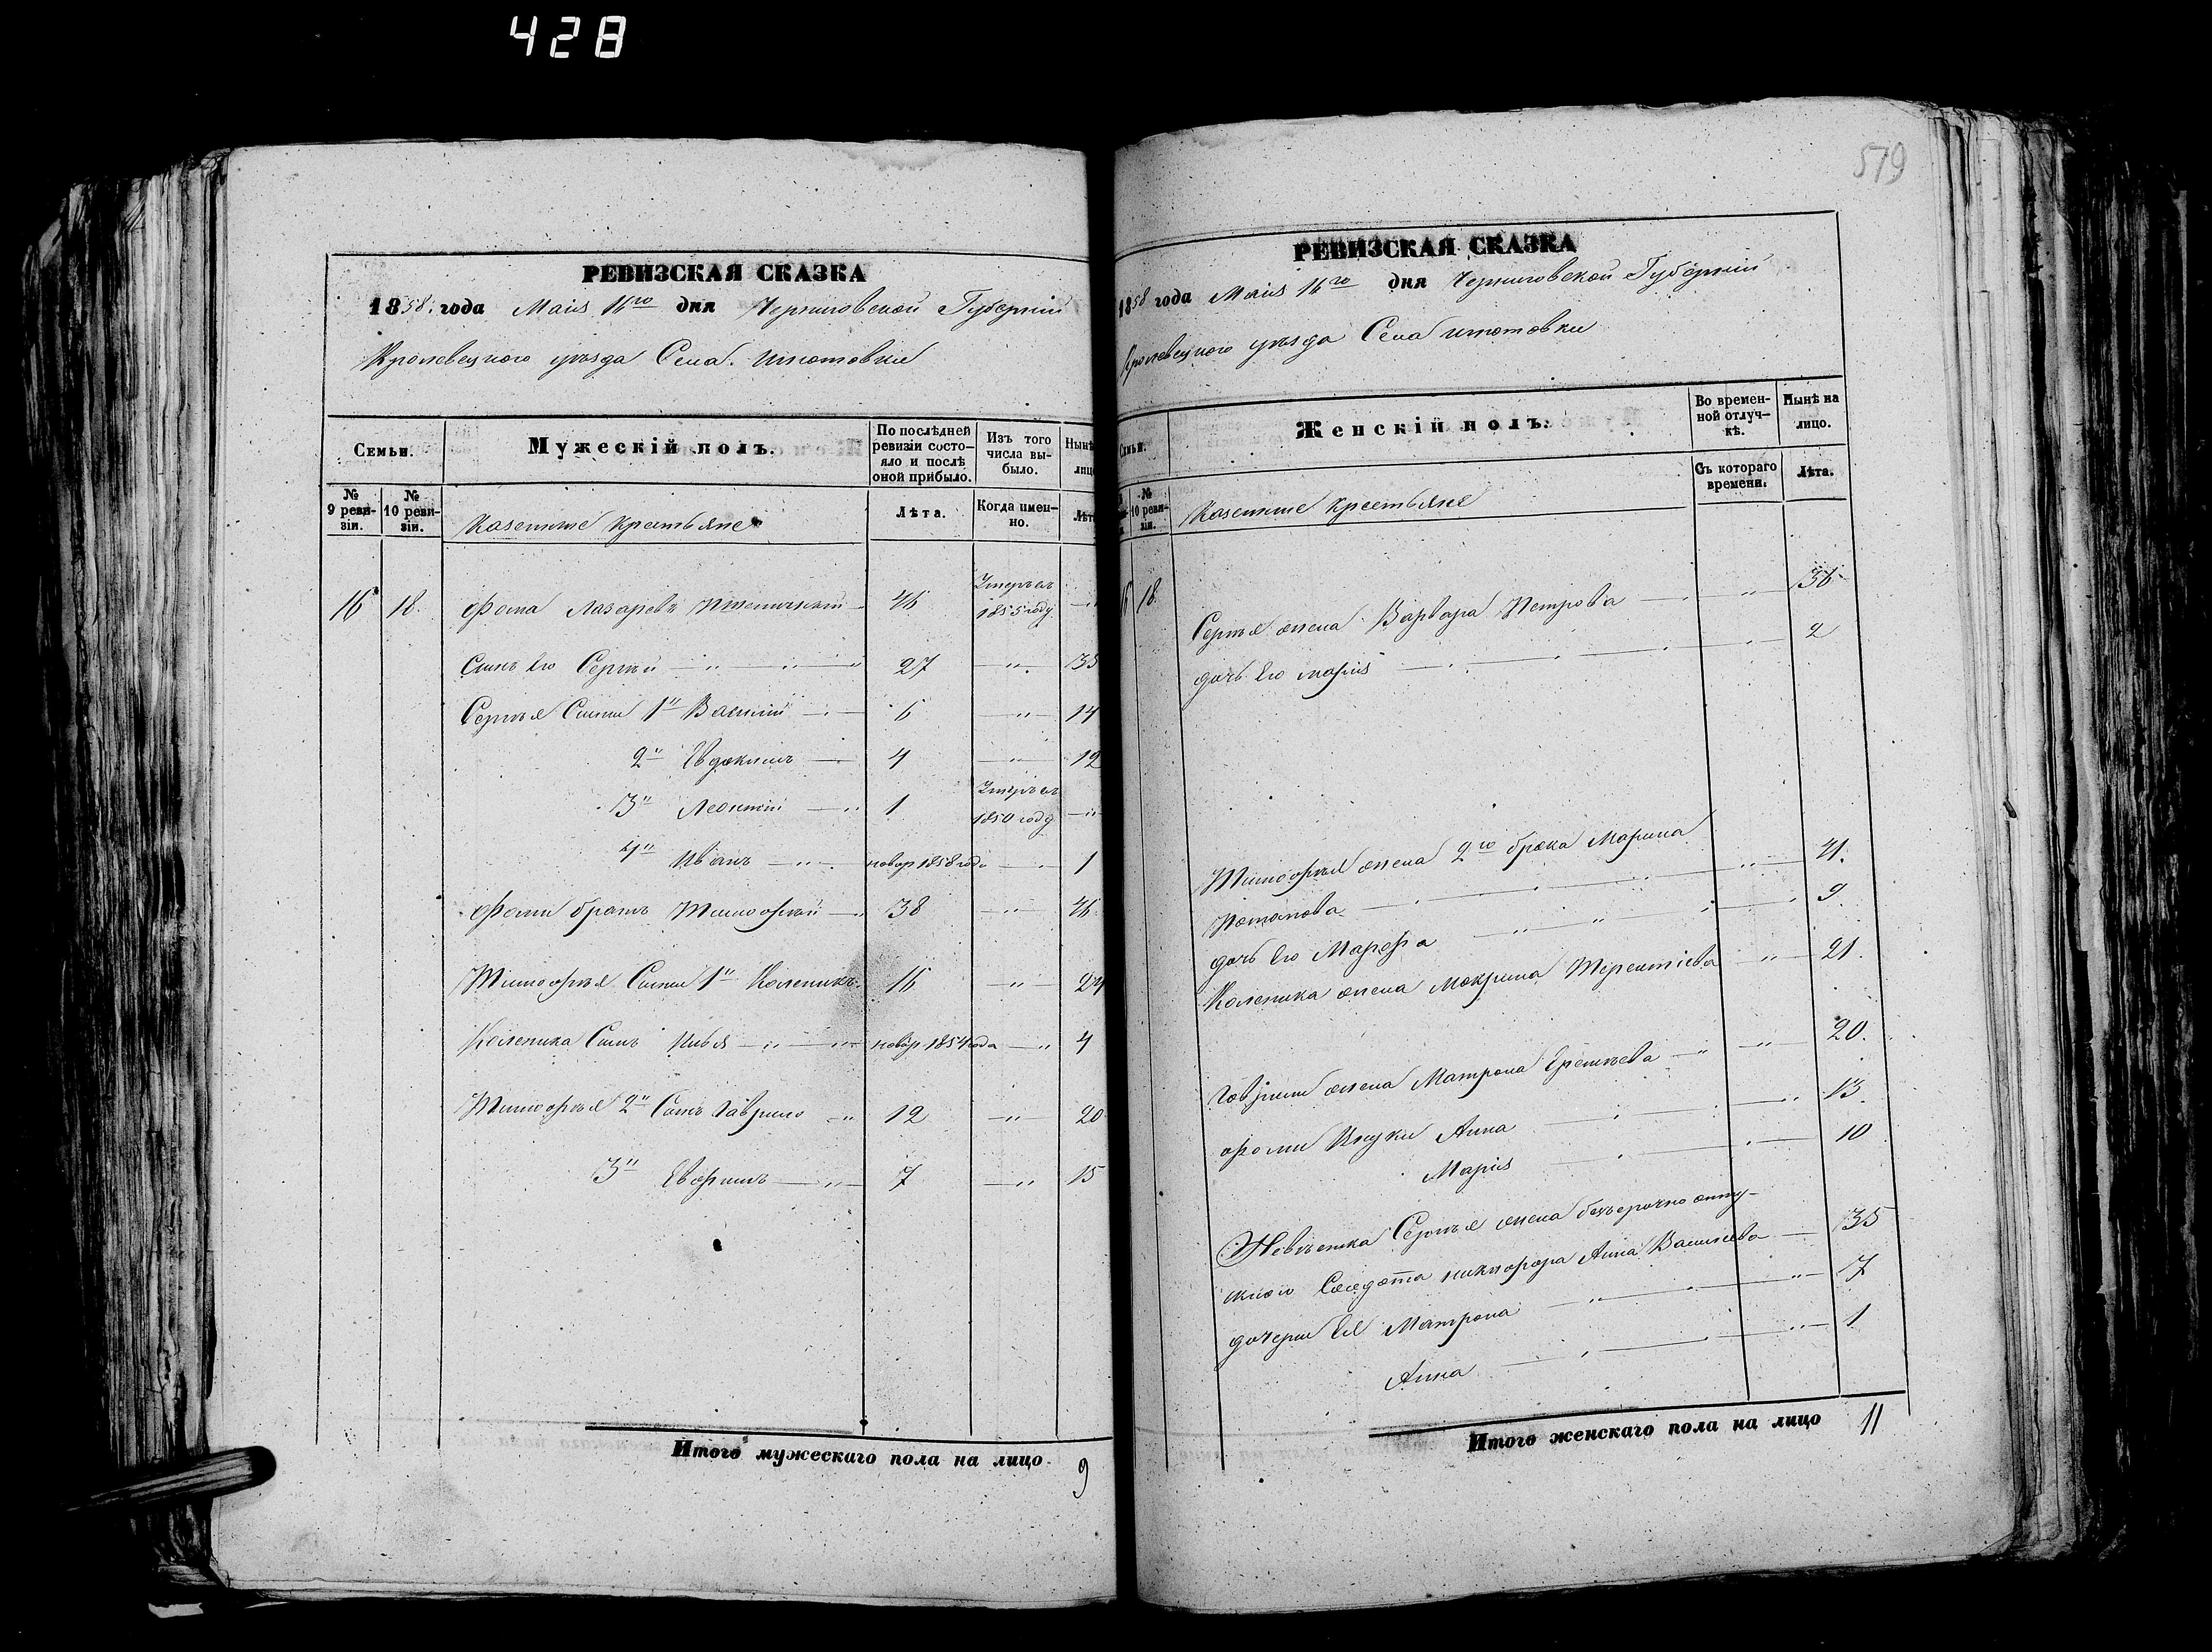 428
РЕВИЗСКАЯ СКАЗКА
1858. года Маія 16го дня Черниговской Губерніи
Кролевецкого уѣзда Села
Семьи.
Мужескій полъ.
По послѣдней ревизіи состояло и послѣ оной прибыло.
Изъ того числа выбыло.
Нынѣ
лиц
№ 9 ревизіи.
№ 10 ревизіи.
Казенные Крестьяне
Лѣта.
Когда именно.
Лѣт
16 18. Фома Лазаревъ 46 Умеръ въ 1855 году
Сынъ Его Сергѣй 27 35
Сергѣя Сыны 1й Василій 6 14
2й Евдокимъ 4 12
3й Леонтій 1 Умеръ въ 1850 году
4й Иванъ новор 1858 года 1
Фомы братъ Тимофѣй 38 46
Тимофѣя Сыны 1й Каленикъ 16 24
Каленика Сынъ Илья новор 1854 года 4
Тимофѣя 2й Сынъ Гаврило 12 20
3й Евфимъ 7 15
Итого мужескаго пола на лицо 9
579
РЕВИЗСКАЯ СКАЗКА
1858 года Маія 16го дня Черниговской Губерніи
Кролевецкого уѣзда Села
Семьи.
Женскій полъ.
Во временной отлучкѣ.
Нынѣ на лицо.
№ 10 ревизіи.
Казенные Крестьяне
Съ котораго времени.
Лѣта.
16 18 Сергѣя жена Варвара Петрова 36
дочь Его Марія 2
Тимофѣя жена 2го брака Марина
Потапова 41.
дочь Его Марфа 9.
Каленика жена Мокрина Терентіева 21.
Гаврилы жена Матрона Еремѣева 20.
Фомы Внуки Анна 13
Марія 10
Невѣстка Сергѣя жена безсрочно отпу-
скного Солдата Никифора Анна Василіева 35
дочери Ея Матрона 7
Анна 1
Итого женскаго пола на лицо 11